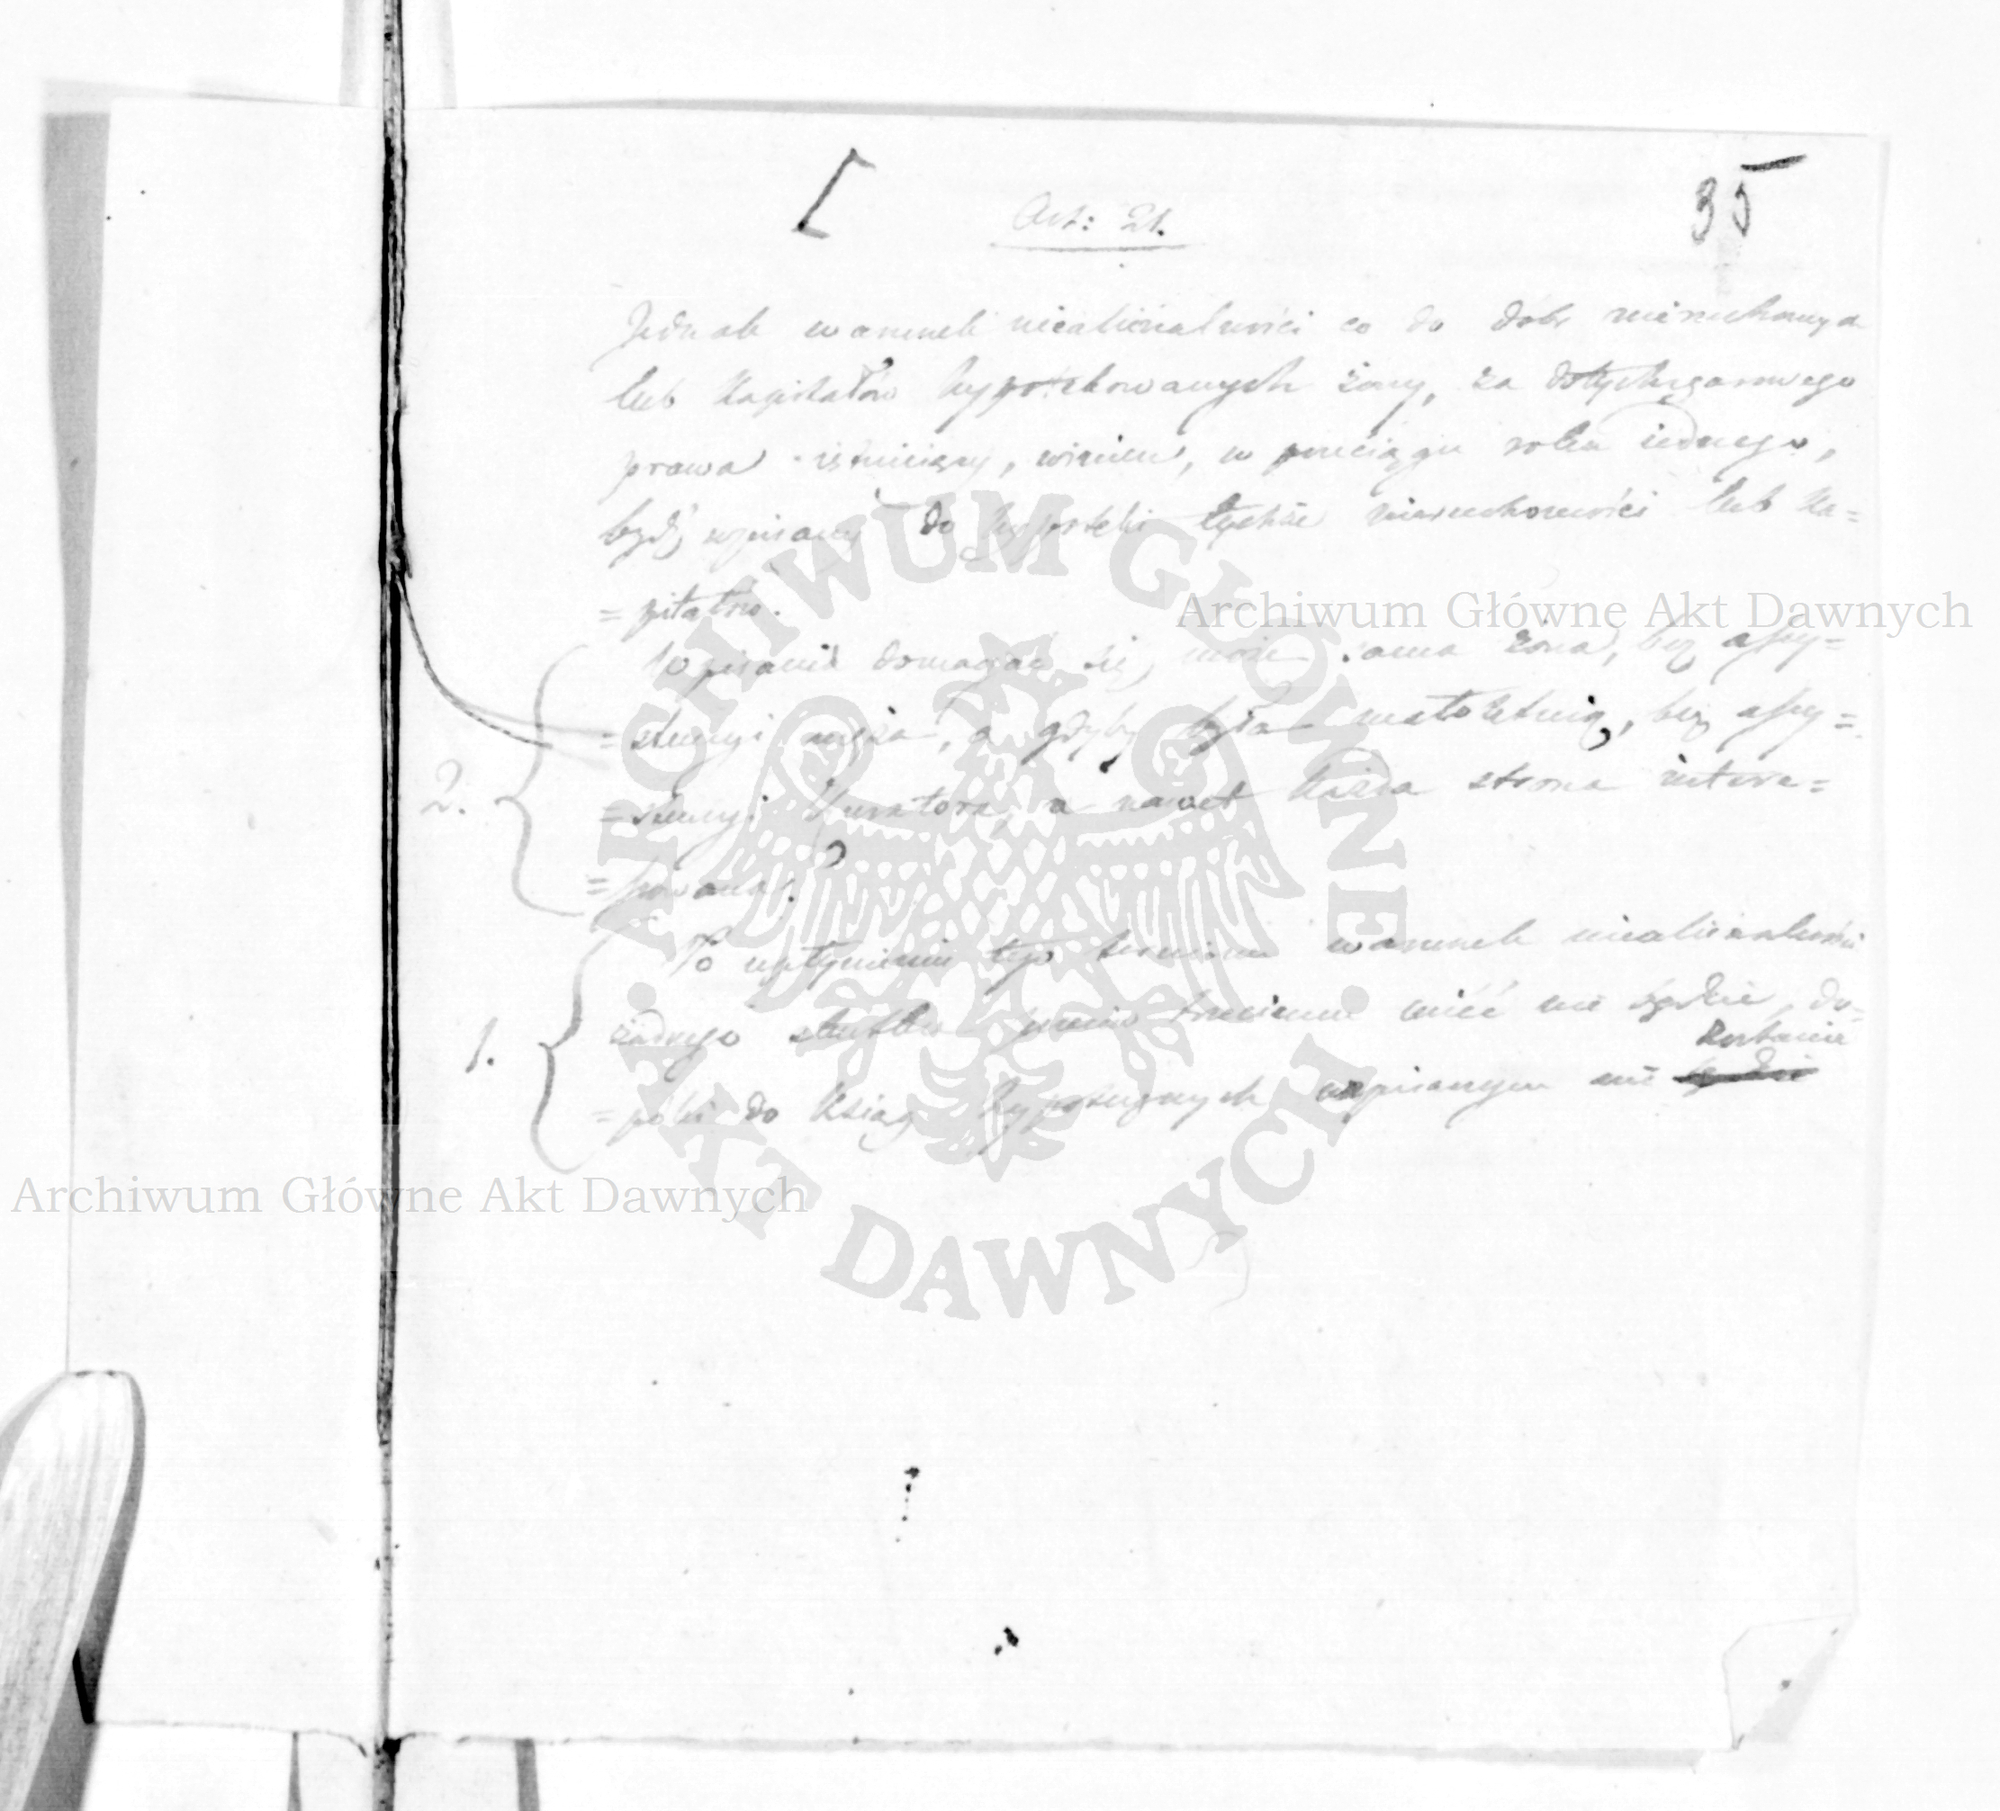 [
35
Art: 21.
Jednak warunek niealienalności co do dóbr nieruchomych
lub kapitałów hypotekowanych żony, za dotychczasowego
prawa istniejący, winien, w przeciągu roku jednego,
bydź wpisany do hypoteki tychże nieruchomości lub ka=
=pitałów.
Wpisania domagać się może sama żona, bez assy=
=stencyi męża, a gdyby była małoletnią, bez assy=
=stencyi Kuratora, a nawet każda strona intere=
=ssowana.
2.
Po upłynieniu tego terminu warunek niealienalności
żadnego skutku przeciw trzeciemu mieć nie będzie, do=
1.
zostanie
=póki do ksiąg hypotecznych wpisanym nie będzie
ARCHIWUM GŁÓWNE AKT DAWNYCH
Archiwum Główne Akt Dawnych
Archiwum Główne Akt Dawnych